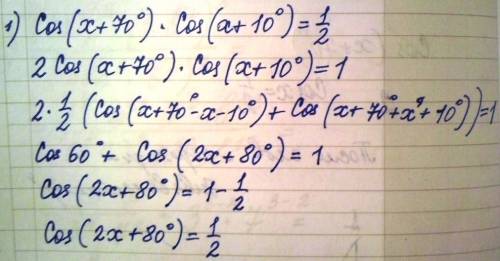 1) Cos(x+70°) · Cos(x+10°) = 1/2
2 Cos(x+70°) · Cos(x+10°) = 1
2 · 1/2 (Cos(x+70°-x-10°) + Cos(x+70°+x+10°)) = 1
Cos 60° + Cos(2x+80°) = 1
Cos(2x+80°) = 1 - 1/2
Cos(2x+80°) = 1/2